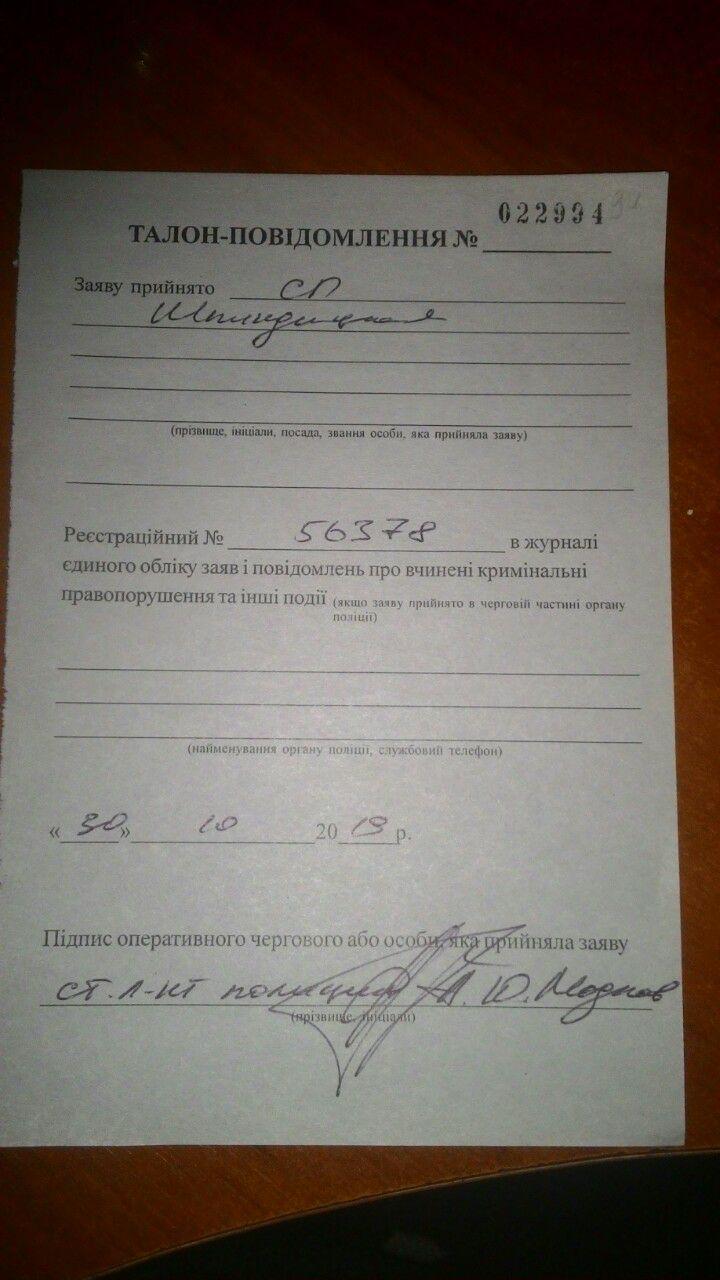 022994
ТАЛОН-ПОВІДОМЛЕННЯ №
Заяву прийнято СП
(прізвище, ініціали, посада, звання особи, яка прийняла заяву)
Реєстраційний № 56378 в журналі
єдиного обліку заяв і повідомлень про вчинені кримінальні
правопорушення та інші події (якщо заяву прийнято в черговій частині органу
поліції)
(найменування органу поліції, службовий телефон)
«30» 10 2019 р.
Підпис оперативного чергового або особи, яка прийняла заяву
ст. л-нт полиции А. Ю.
(прізвище, ініціали)